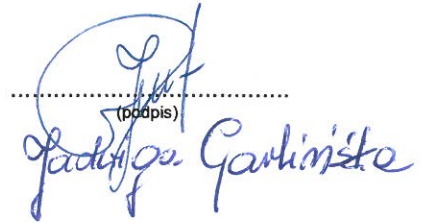 (podpis)
Jadwiga Garlińska